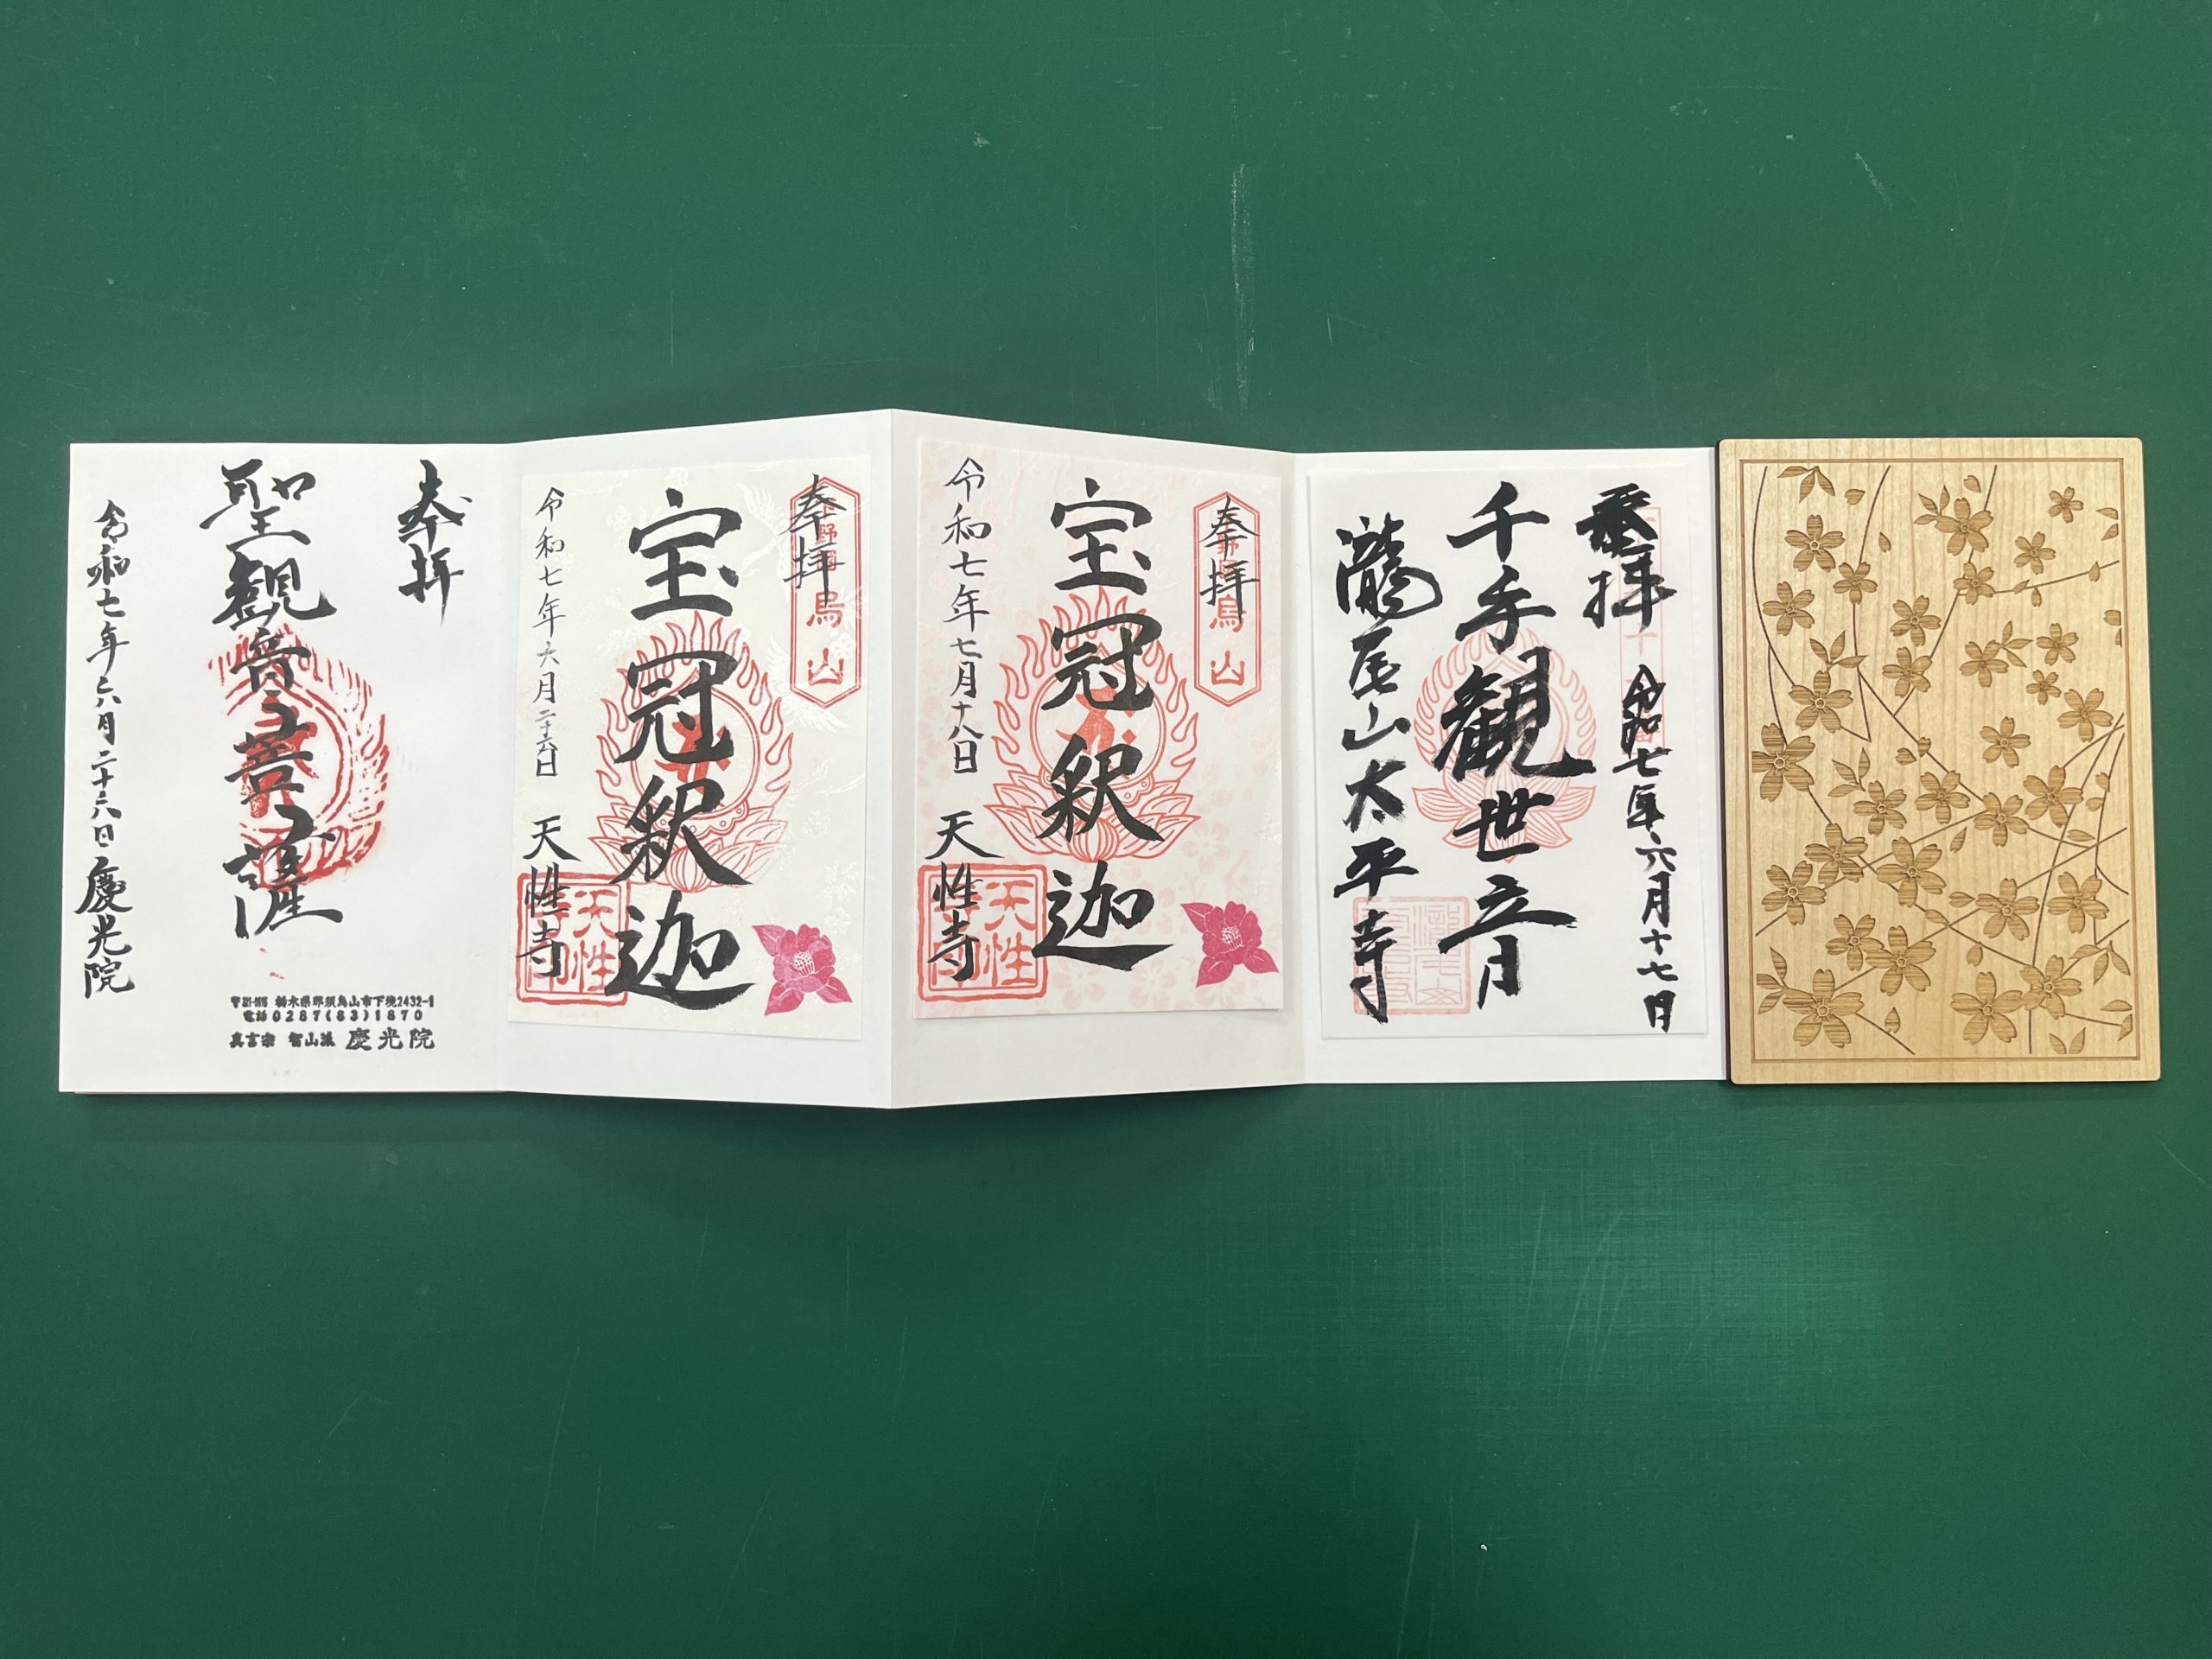 奉拝
令和七年六月十七日
千手観世音
瀧尾山太平寺
奉拝
烏山
宝冠釈迦
令和七年七月十八日
天性寺
天性寺印
奉拝
烏山
宝冠釈迦
令和七年六月二十六日
天性寺
天性寺印
奉拝
聖観音菩薩
令和七年六月二十六日
慶光院
栃木県那須烏山市下境2432-1
電話0287(83)1870
真言宗 智山派 慶光院